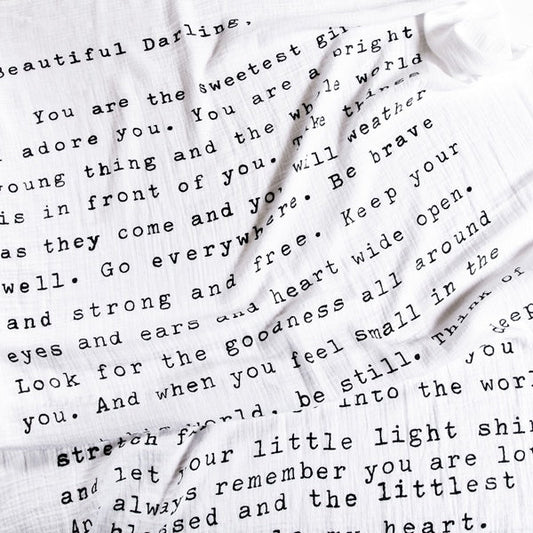 Beautiful Darling,
You are the sweetest
I adore you. You are a bright
young thing and the whole world
is in front of you. Take things
as they come and you will weather
well. Go everywhere. Be brave
and strong and free. Keep your
eyes and ears and heart wide open.
Look for the goodness all around
you. And when you feel small in the
world, be still. Think of
deep
you
stretch into the
and let your little light
always remember you are
and the littlest
my heart.